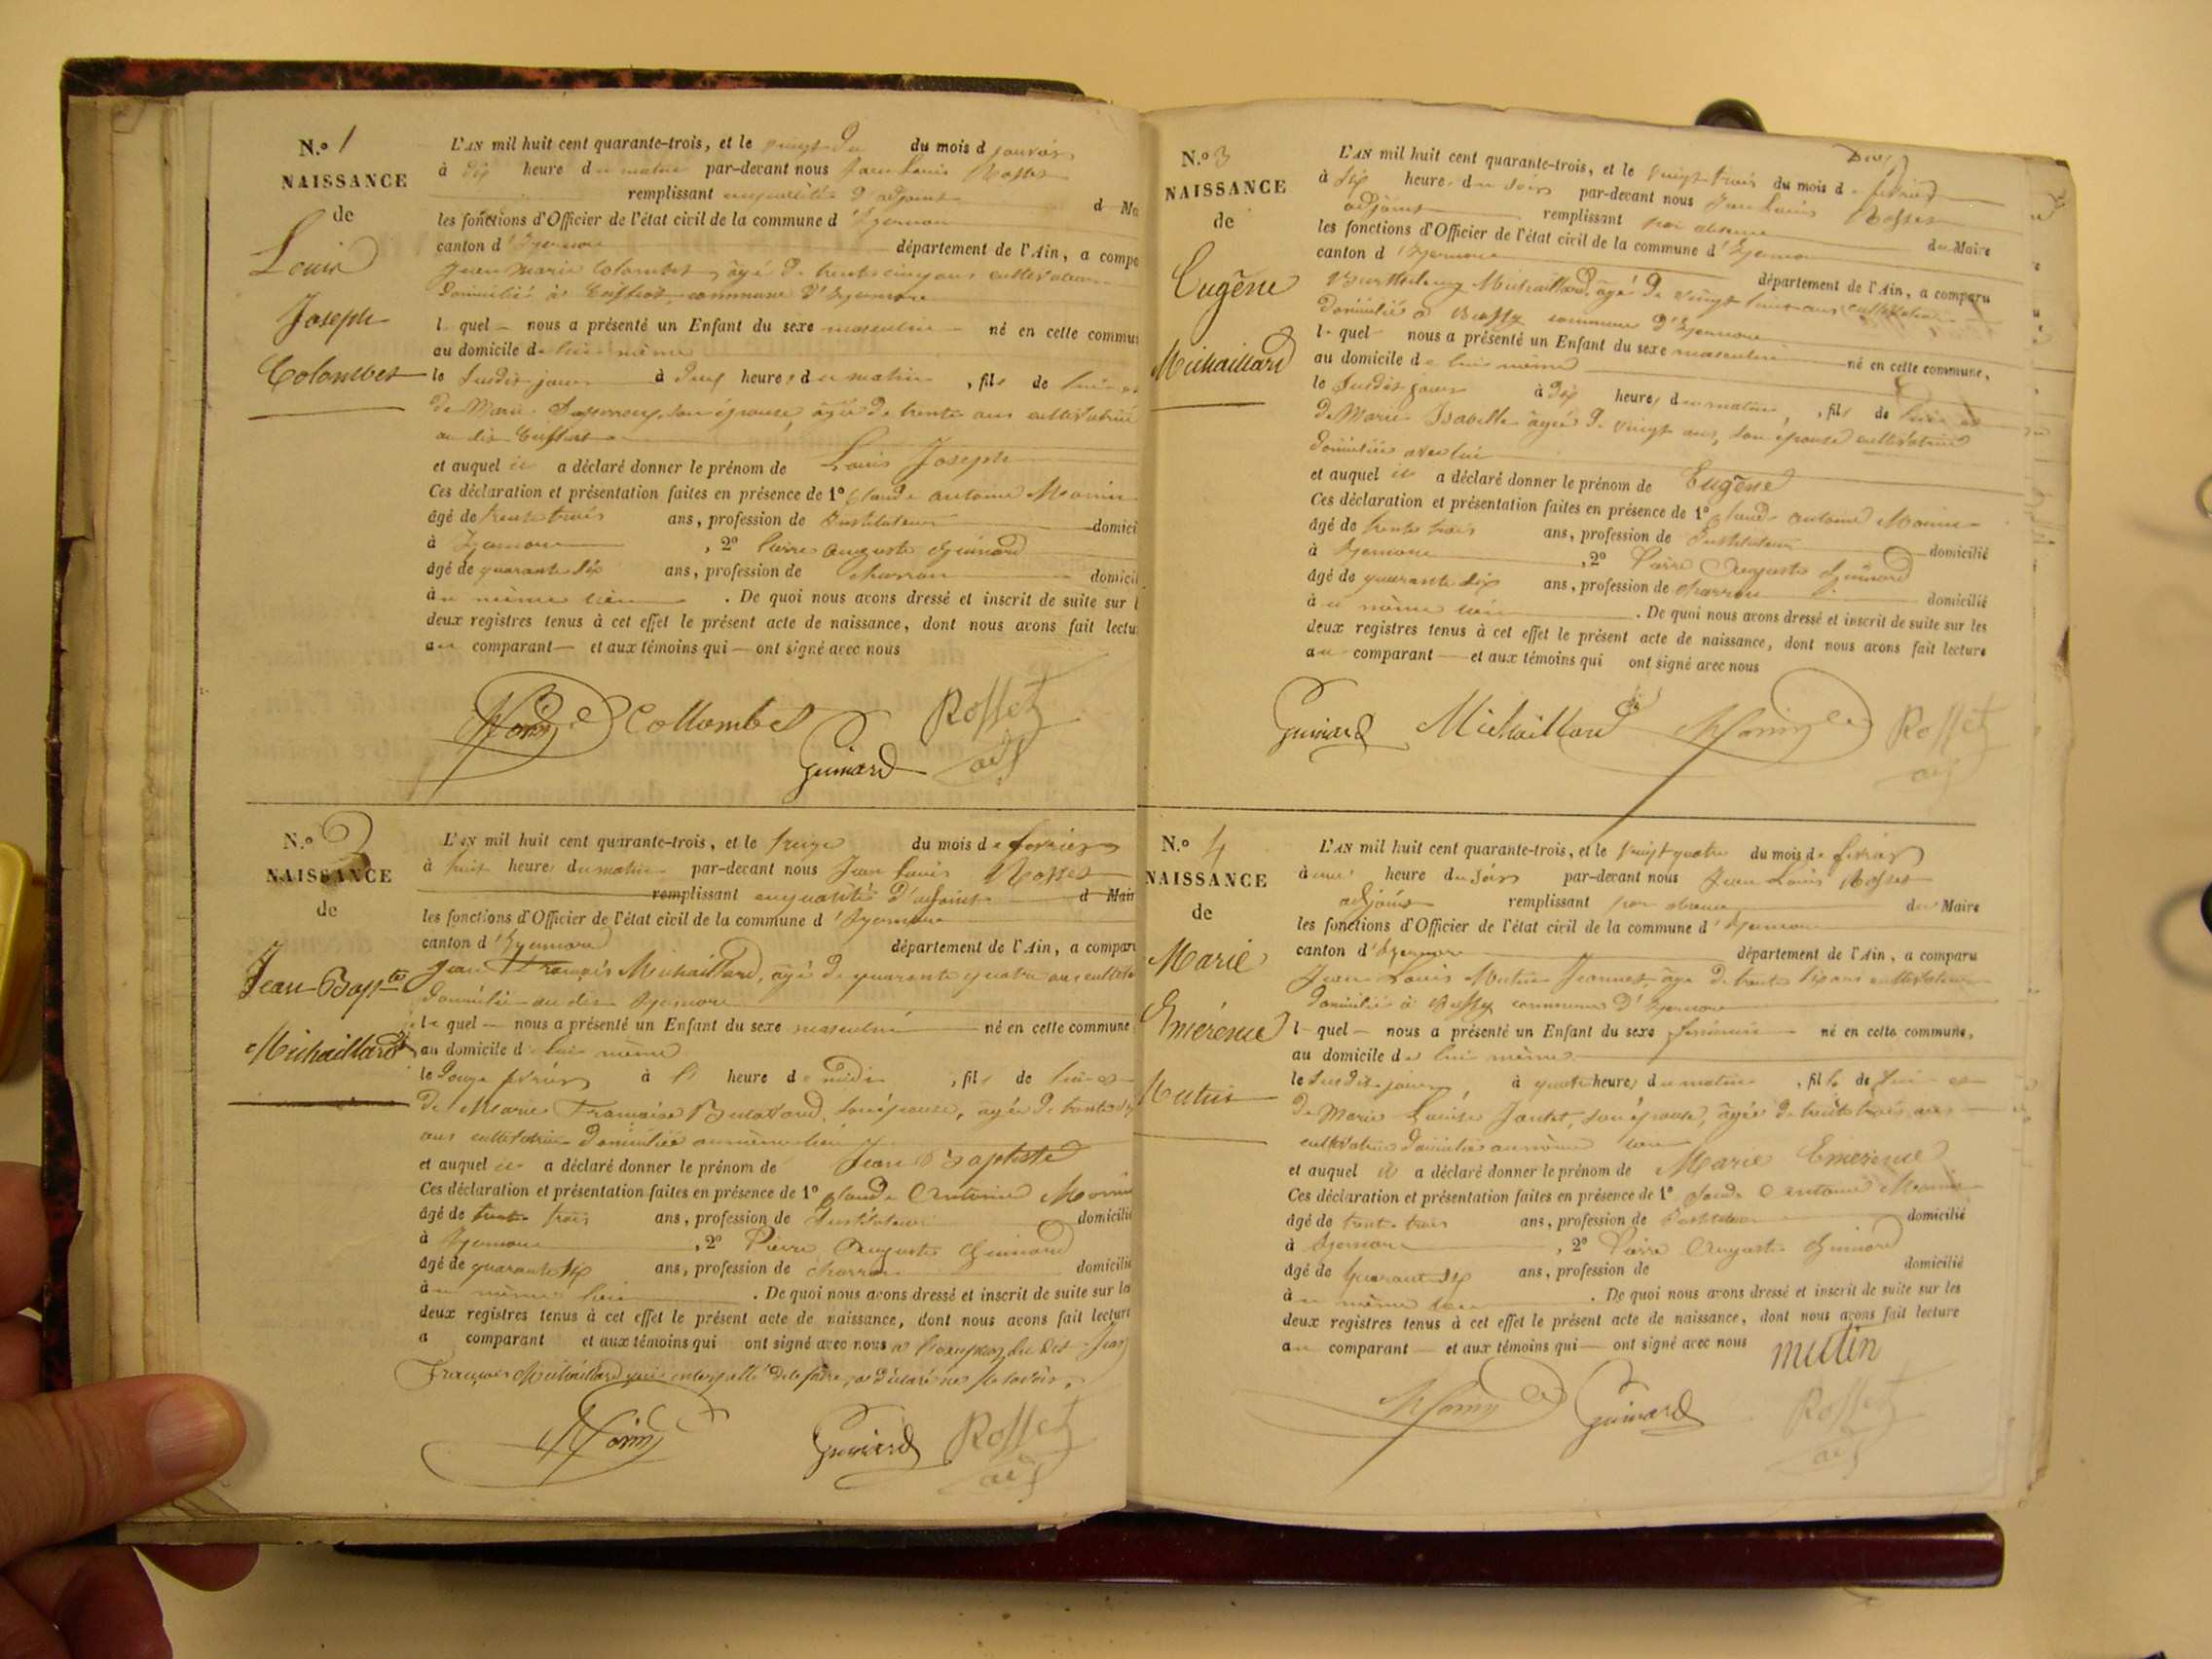 N.o 1
NAISSANCE
de
Louis
Joseph
Colombet
L'AN mil huit cent quarante-trois, et le vingt du mois d janvier
à dix heure du matin par-devant nous Jean Louis Rosset
remplissant en qualité d'adjoint d Ma
les fonctions d'Officier de l'état civil de la commune d'Izernore
canton d'Izernore département de l'Ain, a compa
Jean Marie Colombet, âgé de trente cinq ans cultivateur
domicilié à commune d'Izernore
l quel nous a présenté un Enfant du sexe masculin né en cette commu
au domicile de lui même
le susdit jour à deux heures du matin, fils de lui et
de Marie son épouse, âgée de trente ans cultivatrice
au dit
et auquel il a déclaré donner le prénom de Louis Joseph
Ces déclaration et présentation faites en présence de 1o Claude antoine Monin
âgé de trente trois ans, profession de Instituteur domici
à Izernore, 2o Pierre Auguste Guinard
âgé de quarante six ans, profession de charron domicil
au même lieu. De quoi nous avons dressé et inscrit de suite sur l
deux registres tenus à cet effet le présent acte de naissance, dont nous avons fait lectu
au comparant et aux témoins qui ont signé avec nous
Monin Collombet Guinard Rosset adj
N.o 2
NAISSANCE
de
Jean-Bapte
Michaillard
L'AN mil huit cent quarante-trois, et le treize du mois de février
à huit heures du matin par-devant nous Jean Louis Rosset
remplissant en qualité d'adjoint d Mair
les fonctions d'Officier de l'état civil de la commune d'Izernore
canton d'Izernore département de l'Ain, a compar
Jean François Michaillard, âgé de quarante quatre ans cultiv
domicilié au dit Izernore
le quel nous a présenté un Enfant du sexe masculin né en cette commune
au domicile de lui même
le douze février à heure de midi, fils de lui et
de Marie Françoise son épouse, âgée de trente
ans cultivatrice domiciliée au même lieu
et auquel il a déclaré donner le prénom de Jean Baptiste
Ces déclaration et présentation faites en présence de 1o Claude Antoine Monin
âgé de trente trois ans, profession de Instituteur domicilié
à Izernore, 2o Pierre Auguste Guinard
âgé de quarante six ans, profession de charron domicilié
au même lieu. De quoi nous avons dressé et inscrit de suite sur le
deux registres tenus à cet effet le présent acte de naissance, dont nous avons fait lecture
a comparant et aux témoins qui ont signé avec nous à l'exception du dit Jean
François Michaillard qui interpellé de le faire, a déclaré ne le savoir.
Monin Guinard Rosset adj
N.o 3
NAISSANCE
de
Eugène
Michaillard
L'AN mil huit cent quarante-trois, et le vingt trois du mois de février
à six heures du soir par-devant nous Jean Louis Rosset
adjoint remplissant par absence du Maire
les fonctions d'Officier de l'état civil de la commune d'Izernore
canton d'Izernore département de l'Ain, a comparu
Barthelemy Michaillard, âgé de vingt huit ans cultivateur
domicilié à Bussy commune d'Izernore
l quel nous a présenté un Enfant du sexe masculin né en cette commune,
au domicile de lui même
le susdit jour à dix heures du matin, fils de lui et
de Marie Isabelle âgée de vingt ans, son épouse cultivatrice
domiciliée avec lui
et auquel il a déclaré donner le prénom de Eugène
Ces déclaration et présentation faites en présence de 1o Claude antoine Monin
âgé de trente trois ans, profession de Instituteur domicilié
à Izernore, 2o Pierre Auguste Guinard
âgé de quarante six ans, profession de charron domicilié
au même lieu. De quoi nous avons dressé et inscrit de suite sur les
deux registres tenus à cet effet le présent acte de naissance, dont nous avons fait lecture
au comparant et aux témoins qui ont signé avec nous
Guinard Michaillard Monin Rosset adj
N.o 4
NAISSANCE
de
Marie
Emérencie
Mutin
L'AN mil huit cent quarante-trois, et le vingt quatre du mois de février
à une heure du soir par-devant nous Jean Louis Rosset
adjoint remplissant par absence du Maire
les fonctions d'Officier de l'état civil de la commune d'Izernore
canton d'Izernore département de l'Ain, a comparu
Jean Louis Mutin Jeannet, âgé de trente six ans cultivateur
domicilié à Bussy commune d'Izernore
l quel nous a présenté un Enfant du sexe féminin né en cette commune,
au domicile de lui même
le susdit jour, à quatre heures du matin, fille de lui et
de Marie Louise Jantet, son épouse, âgée de trente trois ans
cultivatrice domiciliée au même lieu
et auquel il a déclaré donner le prénom de Marie Emérencie
Ces déclaration et présentation faites en présence de 1o Claude Antoine Monin
âgé de trente trois ans, profession de Instituteur domicilié
à Izernore, 2o Pierre Auguste Guinard
âgé de quarante six ans, profession de domicilié
au même lieu. De quoi nous avons dressé et inscrit de suite sur les
deux registres tenus à cet effet le présent acte de naissance, dont nous avons fait lecture
au comparant et aux témoins qui ont signé avec nous mutin
Monin Guinard Rosset adj